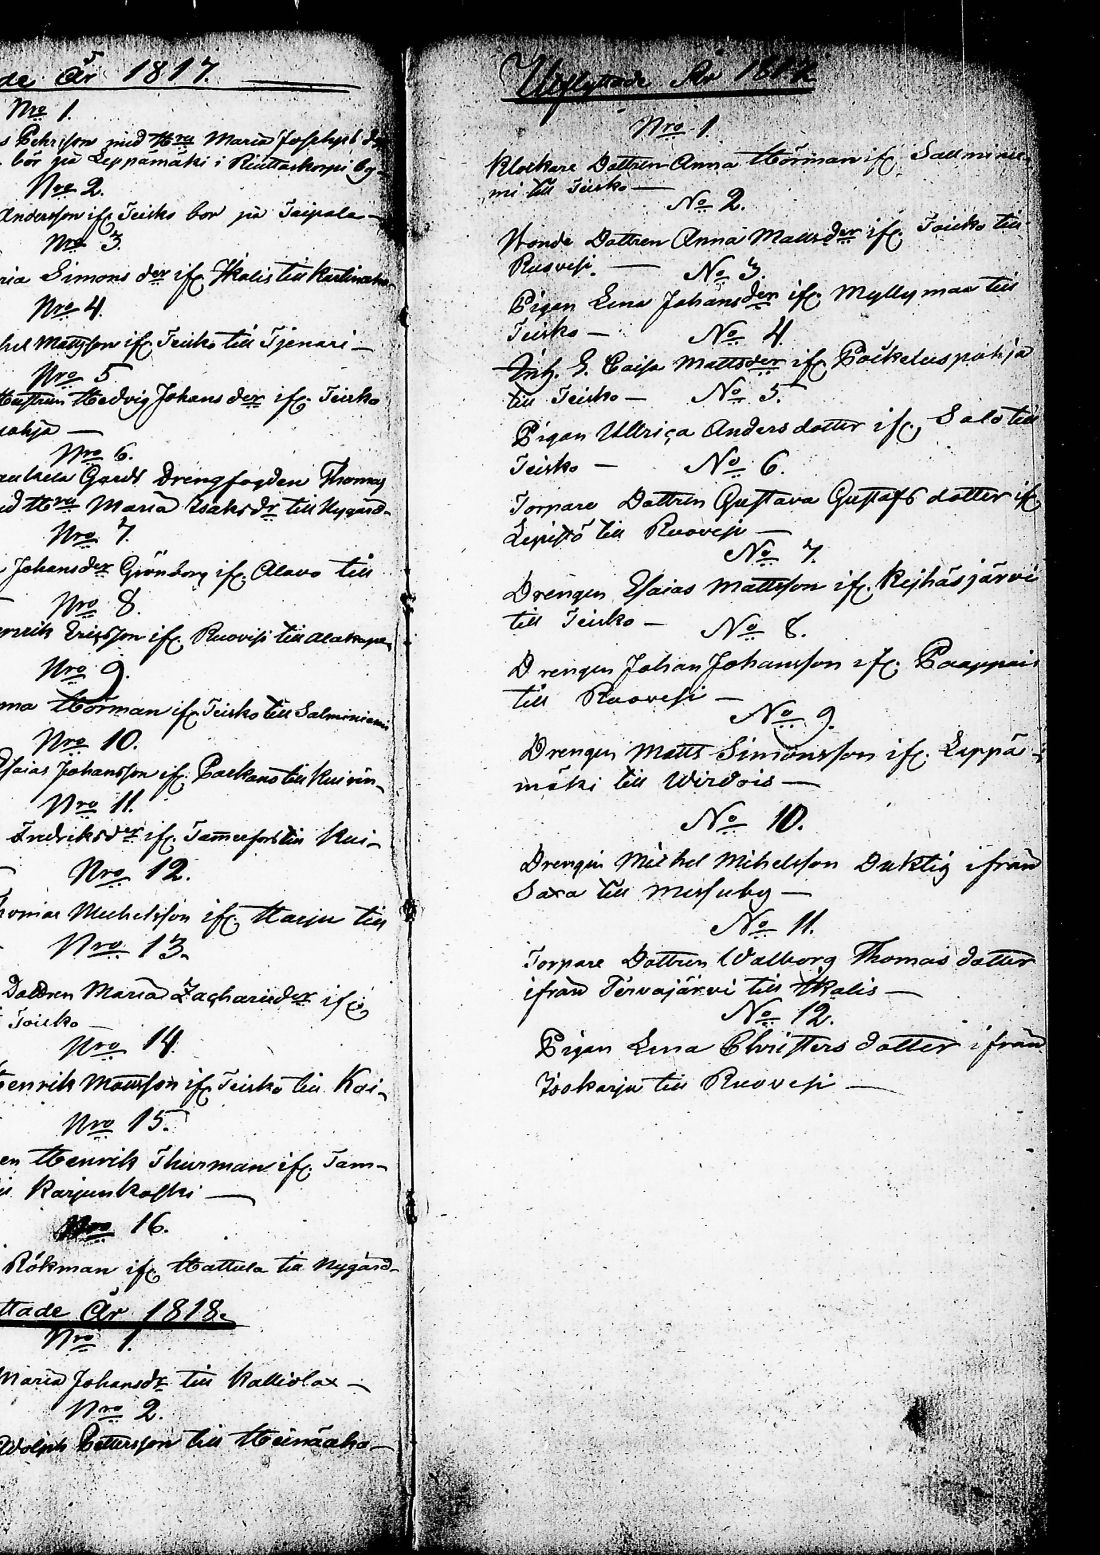 de År 1817.
Nro 1.
s Pehrsson med Hru Maria Josephs
bör på Leppämäki i Ruittaskorpi by-
Nro 2.
Andersson ifr Teisko bor på Taipale —
Nro 3
ria Simons der ifr Ikalis till
Nro 4.
hel Mattsson ifr Teisko till Tjenari —
Nro 5
Hustrun Hedvig Johans der ifr. Teisko
pohja —
Nro 6.
Gards Drengfogden Thomas
d Hru Maria Isaksdr till Nygård-
Nro 7.
Johansder Grönborg ifr. Alavo till
Nro 8.
enrik Ericsson ifr Ruovesi till
Nro 9.
nna Hörman ifr Teisko till Salminiemi
Nro 10.
Esaias Johansson ifr Parkano till
Nro 11.
Fredriksder ifr Tammerfors till Kui-
Nro 12.
homas Michelsson ifr. Harju till
Nro 13.
Dottren Maria Zachariæder ifr
Teisko —
Nro 14.
Henrik Mattsson ifr Teisko till Koi-
Nro 15.
en Henrik Thurman ifr Tam-
Karjunkoski —
Nro 16.
Rökman ifr Hattula till Nygård-
ttade År 1818.
Nro 1.
Maria Johansdr till Kalliolax —
Nro 2.
Wolph Pettersson till Heinäaho —
Utflyttade År 1817.
Nro 1.
Klockare Dottren Anna Hörman ifr Salminie-
mi till Teisko —
No 2.
Bonde Dottren Anna Mattsder ifr. Teisko till
Ruovesi. —
No 3.
Pigan Lena Johansder ifr. Myllymaa till
Teisko —
No 4.
Inh. E. Caisa Mattsder ifr Poikeluspohja
till Teisko —
No 5.
Pigan Ullrica Anders dotter ifr. Salo till
Teisko —
No 6.
Torpare Dottren Gustava Gustafs dotter ifr
Lepistö till Ruovesi —
No 7.
Drengen Esaias Mattsson ifr. Keihäsjärvi
till Teisko —
No 8.
Drengen Johan Johansson ifr. Paappais
till Ruovesi —
No 9.
Drengen Matts Simonsson ifr. Leppä-
mäki till Wirdois —
No 10.
Drengen Michel Mihelsson Duktig ifrån
Saxa till Messuby —
No 11.
Torpare Dottren Walborg Thomas dotter
ifrån Tervajärvi till Ikalis —
No 12.
Pigan Lena Christers dotter ifrån
Isokarju till Ruovesi —